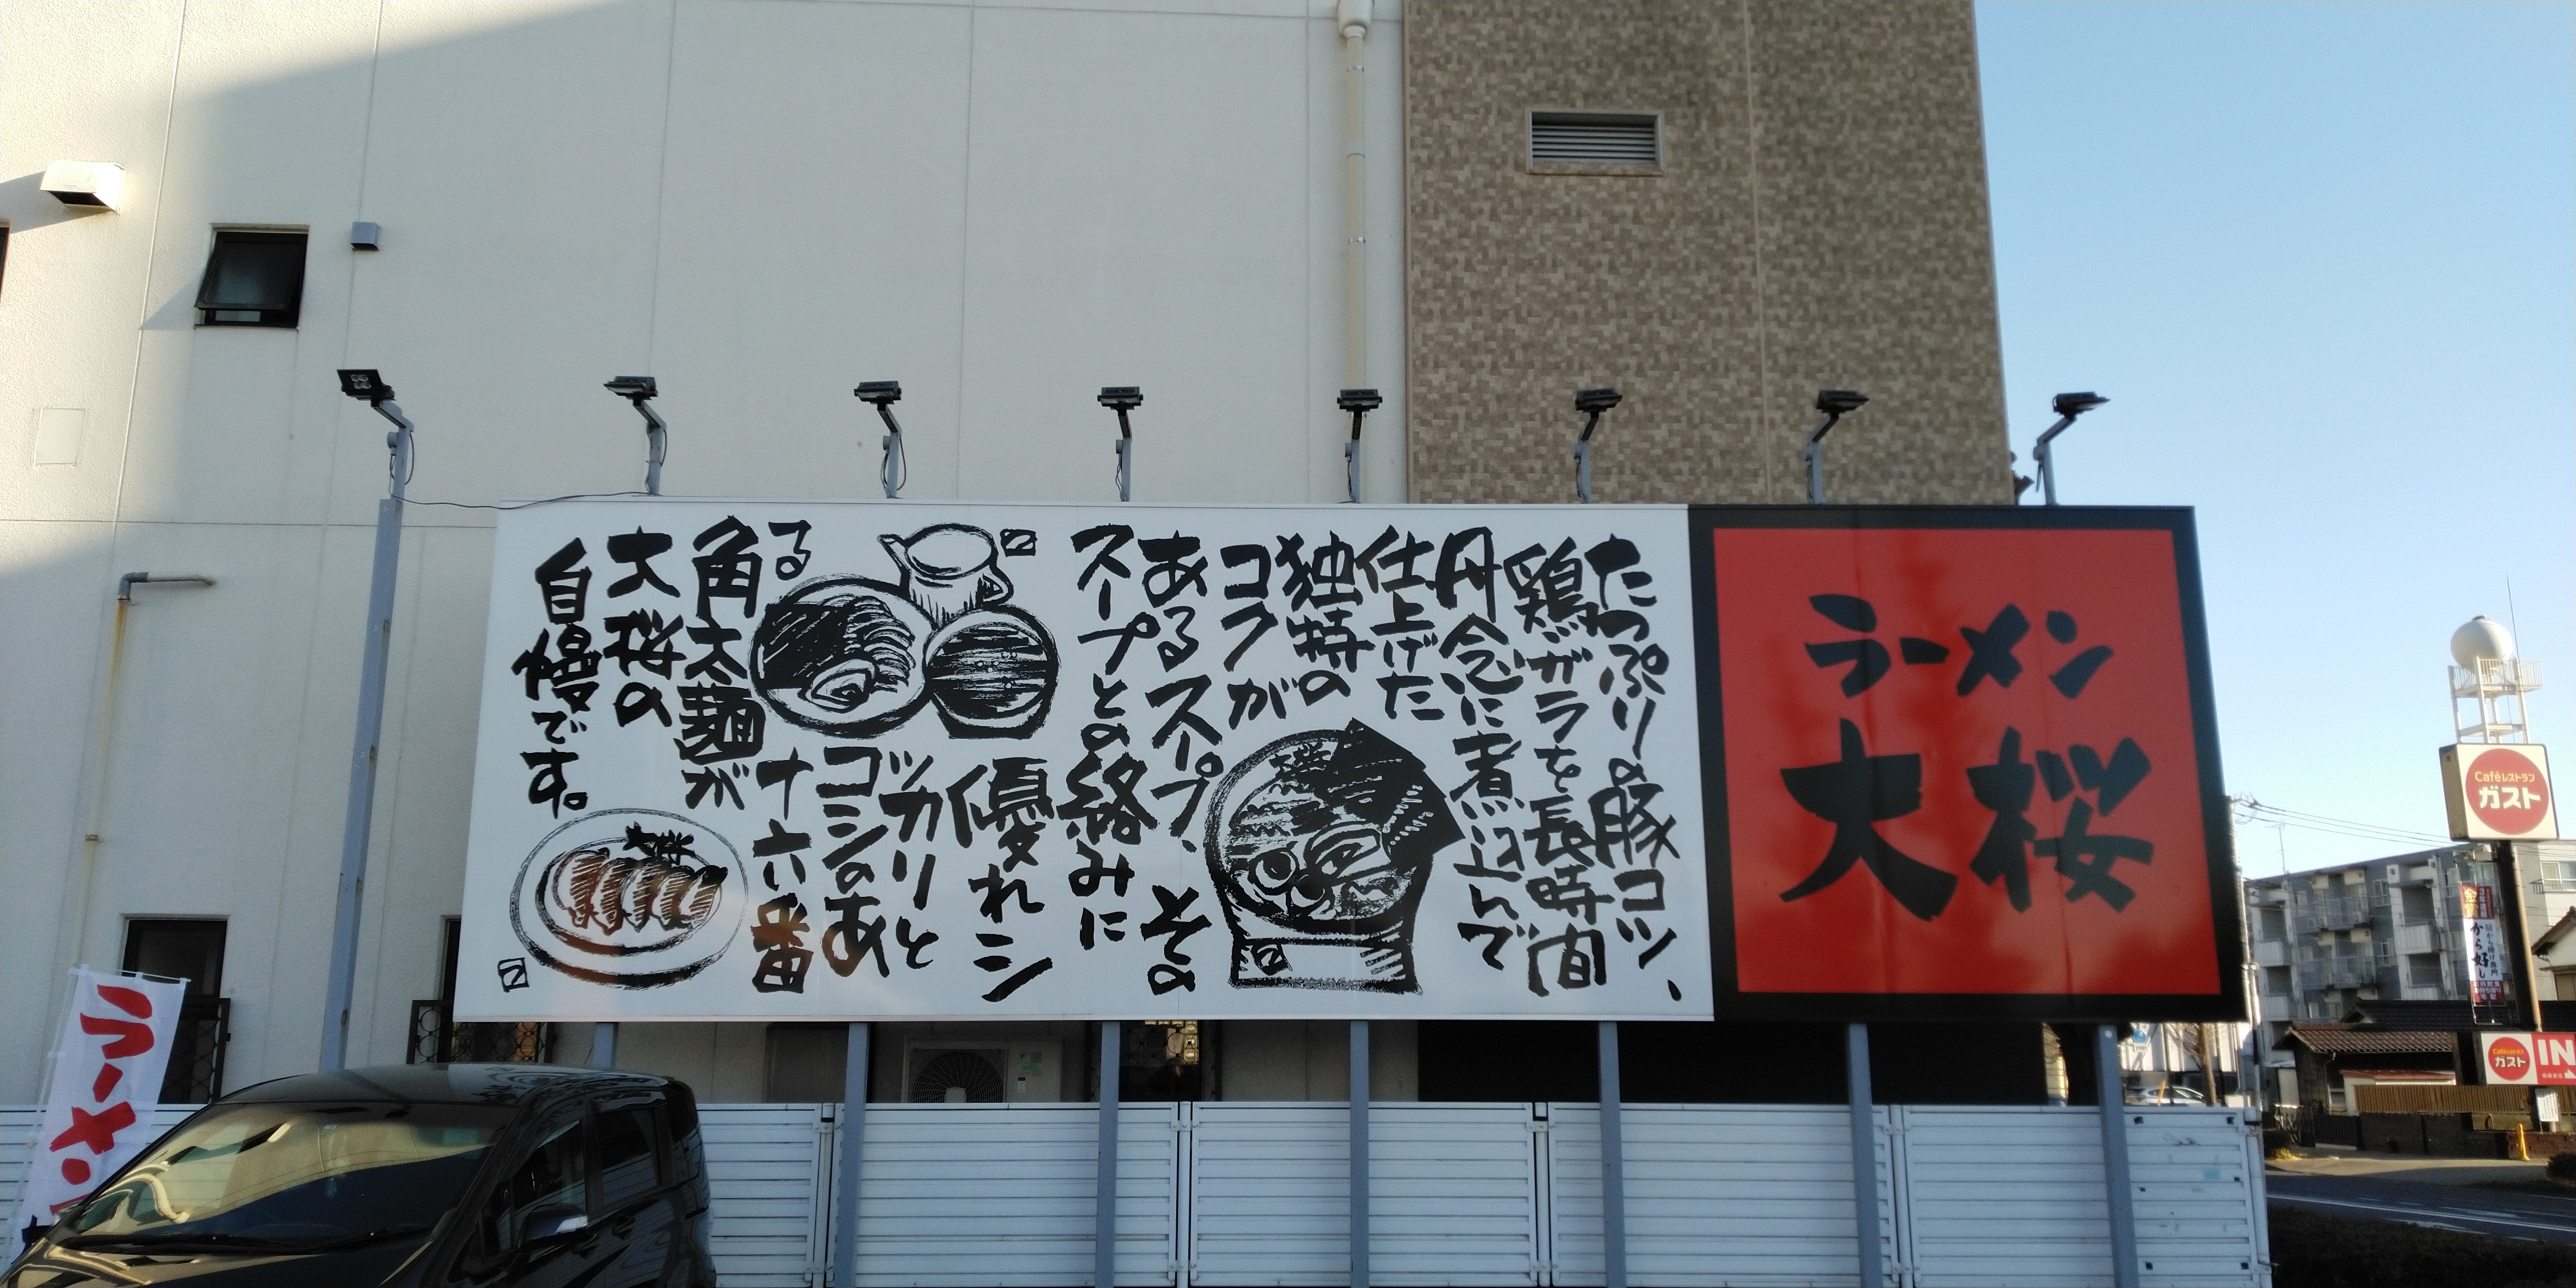 ラーメン
大桜
たっぷりの豚コツ、
鶏ガラを長時間
丹念に煮込んで
仕上げた
独特の
コクが
あるスープ、その
スープとの絡みに
優れシ
ッカリと
コシのあ
る
十六番
角太麺が
大桜の
自慢です。
大桜
ラーメン
Caféレストラン
ガスト
から好し
Caféレストラン
ガスト
IN